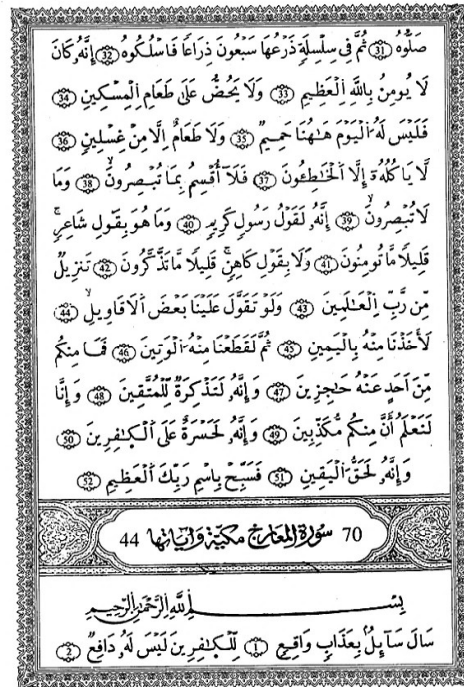 صَلُّوهُ 31 ثُمَّ فِي سِلْسِلَةٍ ذَرْعُهَا سَبْعُونَ ذِرَاعًا فَاسْلُكُوهُ 32 إِنَّهُ كَانَ
لَا يُومِنُ بِاللَّهِ الْعَظِيمِ 33 وَلَا يَحُضُّ عَلَى طَعَامِ الْمِسْكِينِ 34
فَلَيْسَ لَهُ الْيَوْمَ هَاهُنَا حَمِيمٌ 35 وَلَا طَعَامٌ اِلَّا مِنْ غِسْلِينٍ 36
لَّا يَاكُلُهُ إِلَّا الْخَاطِئُونَ 37 فَلَا أُقْسِمُ بِمَا تُبْصِرُونَ 38 وَمَا
لَا تُبْصِرُونَ 39 إِنَّهُ لَقَوْلُ رَسُولٍ كَرِيمٍ 40 وَمَا هُوَ بِقَوْلِ شَاعِرٍ
قَلِيلًا مَّا تُومِنُونَ 41 وَلَا بِقَوْلِ كَاهِنٍ قَلِيلًا مَّا تَذَّكَّرُونَ 42 تَنزِيلٌ
مِّن رَّبِّ الْعَالَمِينَ 43 وَلَوْ تَقَوَّلَ عَلَيْنَا بَعْضَ الَاقَاوِيلِ 44
لَأَخَذْنَا مِنْهُ بِالْيَمِينِ 45 ثُمَّ لَقَطَعْنَا مِنْهُ الْوَتِينَ 46 فَمَا مِنكُم
مِّنَ اَحَدٍ عَنْهُ حَاجِزِينَ 47 وَإِنَّهُ لَتَذْكِرَةٌ لِّلْمُتَّقِينَ 48 وَإِنَّا
لَنَعْلَمُ أَنَّ مِنكُم مُّكَذِّبِينَ 49 وَإِنَّهُ لَحَسْرَةٌ عَلَى الْكَافِرِينَ 50
وَإِنَّهُ لَحَقُّ الْيَقِينِ 51 فَسَبِّحْ بِاسْمِ رَبِّكَ الْعَظِيمِ 52
70 سورة المعارج مكية وآياتها 44
بِسْمِ اللَّهِ الرَّحْمَٰنِ الرَّحِيمِ
سَالَ سَآئِلٌ بِعَذَابٍ وَاقِعٍ 1 لِّلْكَافِرِينَ لَيْسَ لَهُ دَافِعٌ 2